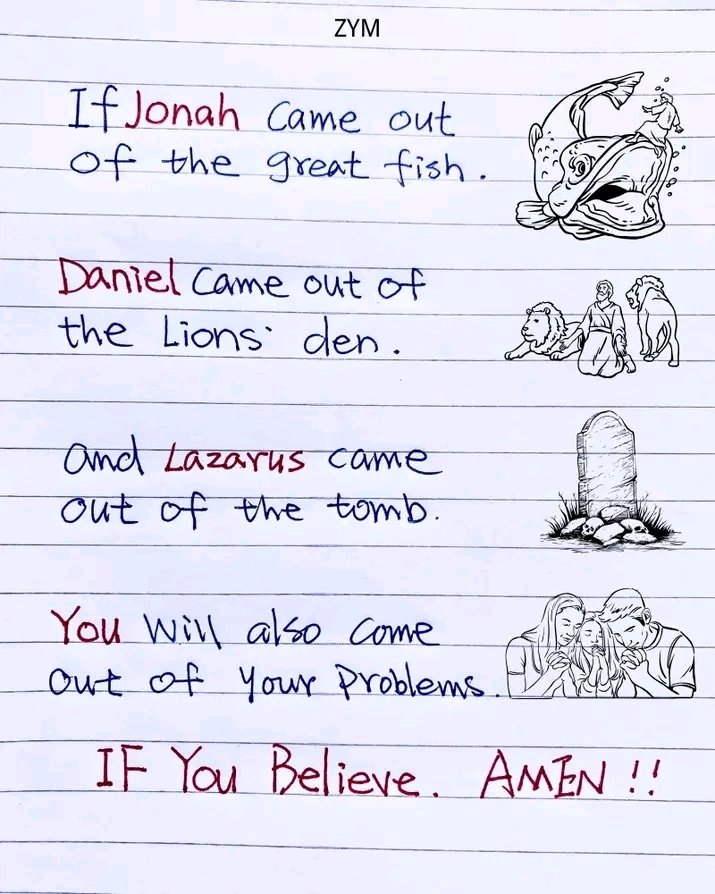 ZYM
If Jonah came out
of the great fish.
Daniel came out of
the Lions' den.
and Lazarus came
out of the tomb.
You will also come
out of your problems.
IF You Believe. AMEN !!